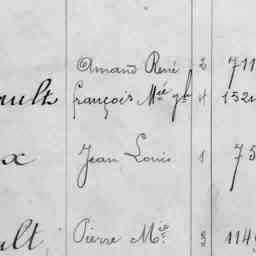 Amand René 2 711
ault François Mie 4 152
x Jean Louis 1 75
ult Pierre Mie 2 114